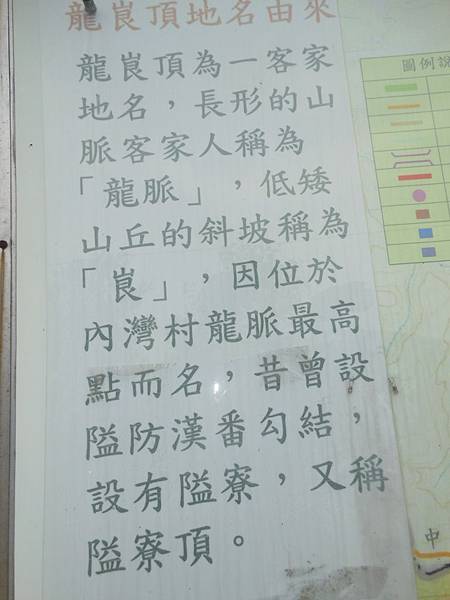 龍崀頂地名由來
龍崀頂為一客家
地名，長形的山
脈客家人稱為
「龍脈」，低矮
山丘的斜坡稱為
「崀」，因位於
內灣村龍脈最高
點而名，昔曾設
隘防漢番勾結，
設有隘寮，又稱
隘寮頂。
圖例說
中